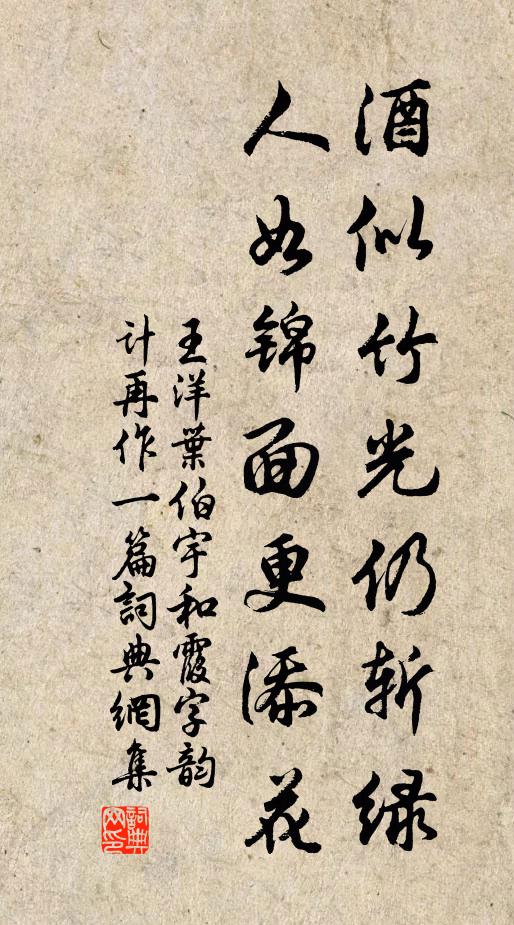 酒似竹光仍斩绿
人如锦面更添花
王洋葉伯宇和霞字韵
计再作一篇詞典網集
詞典網印